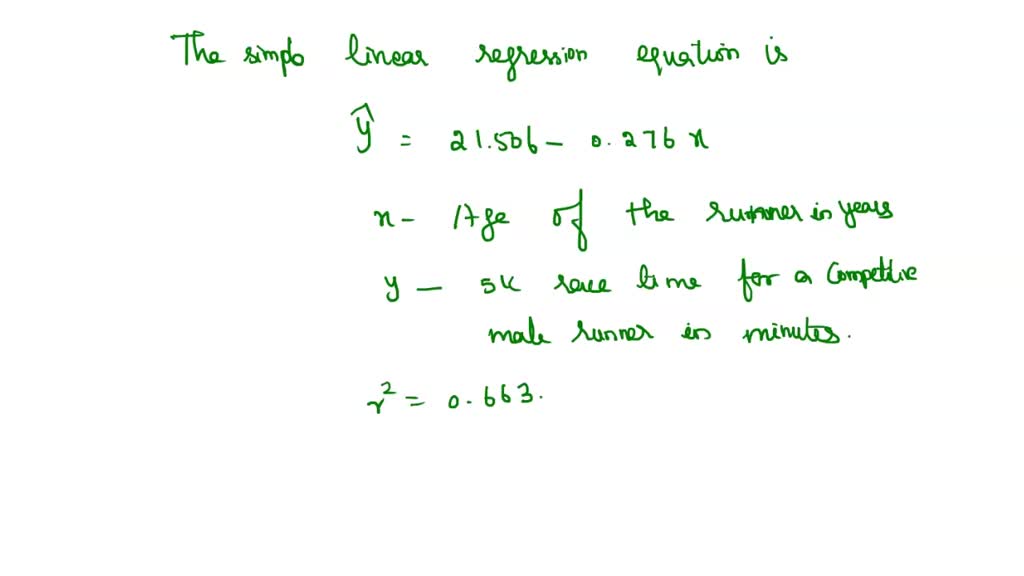 The simple linear regression equation is
ŷ = 21.506 - 0.276 x
x - Age of the runner in years
y - 5K race time for a Competitive
male runner in minutes.
r² = 0.663.